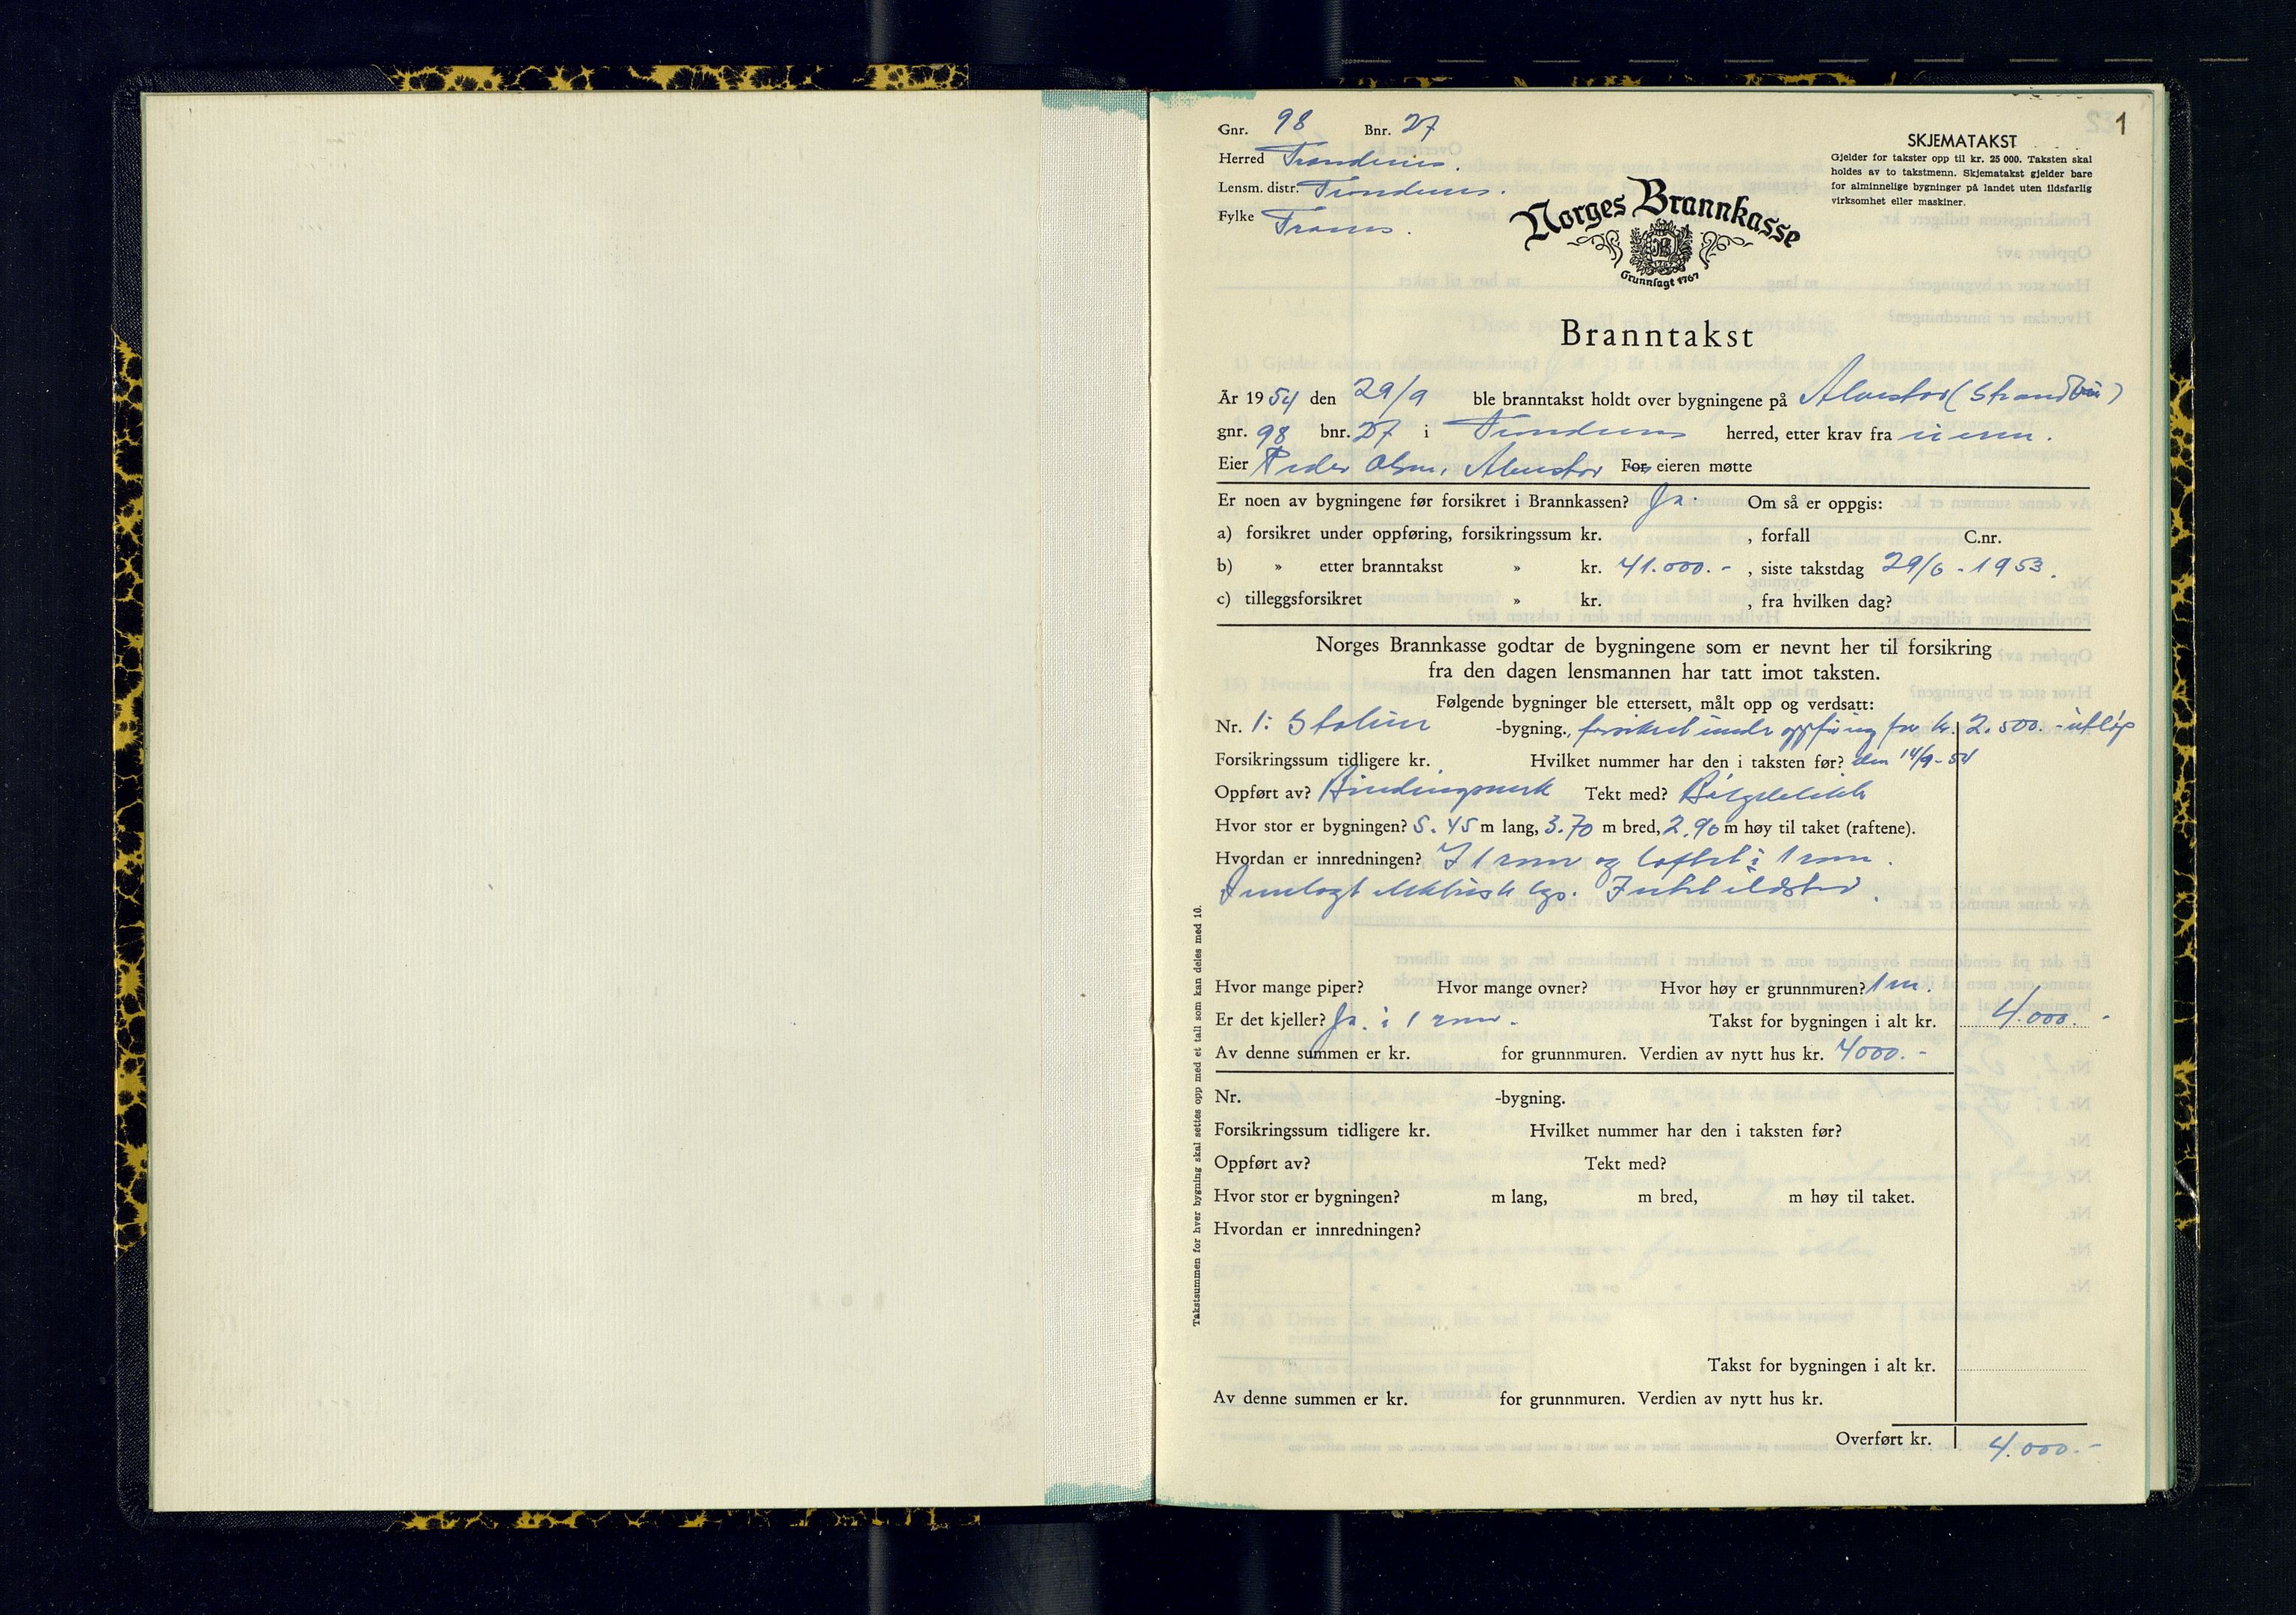 1
Gnr. 98 Bnr. 27
Herred Trondenes.
Lensm. distr. Trondenes.
Fylke Troms.
SKJEMATAKST
Gjelder for takster opp til kr. 25 000. Taksten skal
holdes av to takstmenn. Skjematakst gjelder bare
for alminnelige bygninger på landet uten ildsfarlig
virksomhet eller maskiner.
Norges Brannkasse
Grunnlagt 1767
Branntakst
År 1954 den 29/9 ble branntakst holdt over bygningene på (Strandbu)
gnr. 98 bnr. 27 i Trondenes herred, etter krav fra eieren.
Eier Peder Olsen, For eieren møtte
Er noen av bygningene før forsikret i Brannkassen? Ja. Om så er oppgis:
a) forsikret under oppføring, forsikringssum kr. , forfall C.nr.
b) » etter branntakst » kr. 41.000.- , siste takstdag 29/6 - 1953.
c) tilleggsforsikret » kr. , fra hvilken dag?
Norges Brannkasse godtar de bygningene som er nevnt her til forsikring
fra den dagen lensmannen har tatt imot taksten.
Følgende bygninger ble ettersett, målt opp og verdsatt:
Nr. 1: -bygning., forsikret under oppføring for kr. 2.500.- utløp
Forsikringssum tidligere kr. Hvilket nummer har den i taksten før? den 14/9-54
Oppført av? Bindingsverk Tekt med? Bølgeblikk
Hvor stor er bygningen? 5.45 m lang, 3.70 m bred, 2.90 m høy til taket (raftene).
Hvordan er innredningen? I 1 rom og loftet i 1 rom.
Innlagt elektrisk lys. Intet ildsted.
Hvor mange piper? Hvor mange ovner? Hvor høy er grunnmuren? 1 m.
Er det kjeller? Ja. i 1 rom. Takst for bygningen i alt kr. 4.000.-
Av denne summen er kr. for grunnmuren. Verdien av nytt hus kr. 4000.-
Nr. -bygning.
Forsikringssum tidligere kr. Hvilket nummer har den i taksten før?
Oppført av? Tekt med?
Hvor stor er bygningen? m lang, m bred, m høy til taket.
Hvordan er innredningen?
Takst for bygningen i alt kr.
Av denne summen er kr. for grunnmuren. Verdien av nytt hus kr.
Overført kr. 4.000.-
Takstsummen for hver bygning skal settes opp med et tall som kan deles med 10.